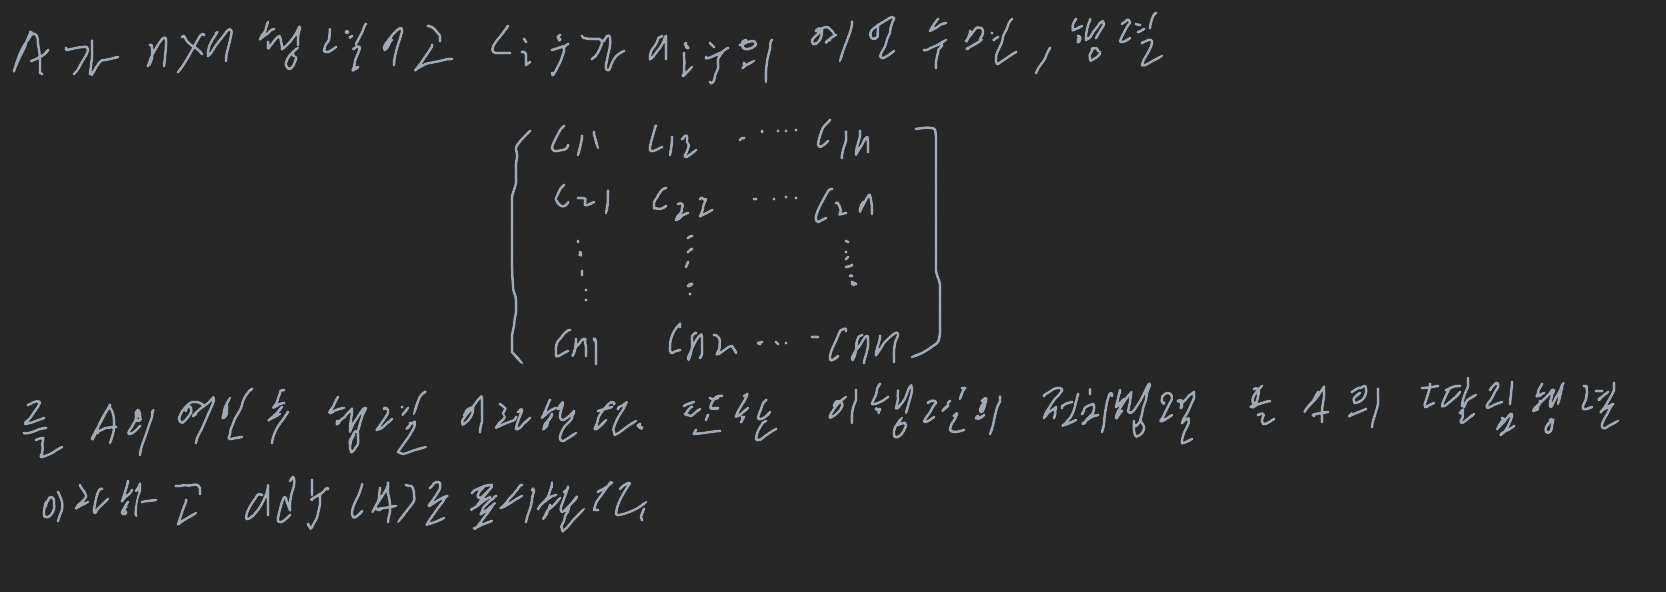 A가 n×n 행렬이고 Cij가 aij의 여인수면, 행렬
C11 C12 ····· C1n
C21 C22 ····· C2n
⋮ ⋮ ⋮
Cn1 Cn2 ····· Cnn
를 A의 여인수 행렬 이라한다. 또한 이행렬의 전치행렬 을 A의 딸림행렬
이라하고 adj(A)로 표시한다.